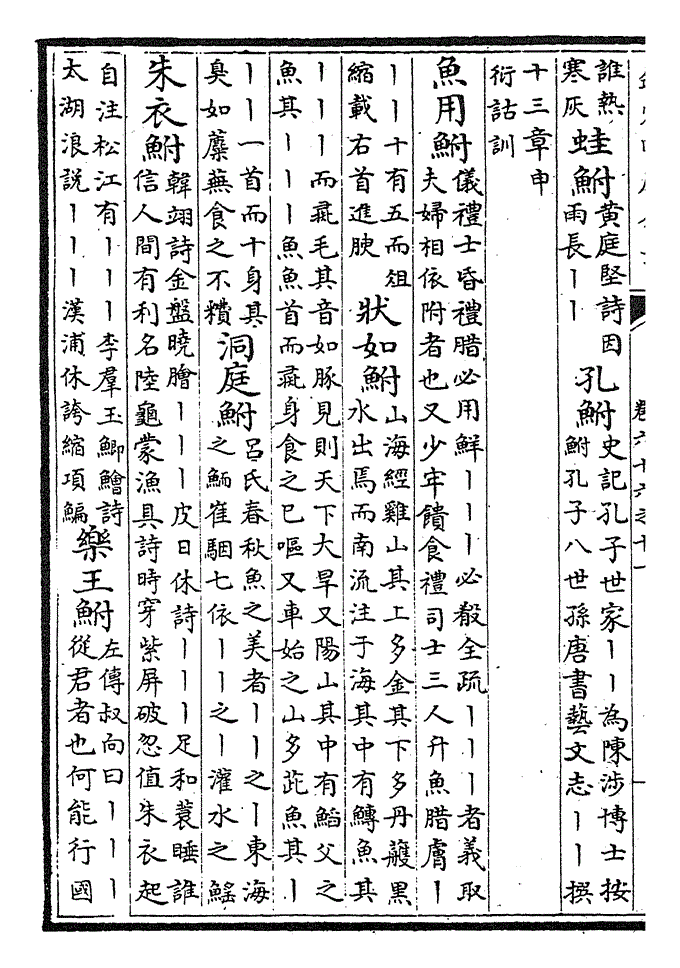 卷六十六之十一
誰熱
寒灰
蛙鮒
黄庭堅詩因
雨長丨丨
孔鮒
史記孔子世家丨丨為陳涉博士按
鮒孔子八世孫唐書藝文志丨丨撰
十三章申
衍詁訓
魚用鮒
儀禮士昏禮腊必用鮮丨丨丨必殽全疏丨丨丨者義取
夫婦相依附者也又少牢饋食禮司士三人升魚腊膚丨
丨丨十有五而俎
縮載右首進腴
狀如鮒
山海經雞山其上多金其下多丹雘黑
水出焉而南流注于海其中有鱄魚其
丨丨丨而彘毛其音如豚見則天下大旱又陽山其中有䱤父之
魚其丨丨丨魚魚首而彘身食之已嘔又車始之山多茈魚其丨
丨丨一首而十身其
臭如蘪蕪食之不糟
洞庭鮒
呂氏春秋魚之美者丨丨之丨東海
之鮞崔駰七依丨丨之丨灌水之鰩
朱衣鮒
韓翊詩金盤曉膾丨丨丨皮日休詩丨丨丨足和蓑睡誰
信人間有利名陸龜蒙漁具詩時穿紫屏破忽值朱衣起
自注松江有丨丨丨李羣玉鯽鱠詩
太湖浪說丨丨丨漢浦休誇縮項鯿
樂王鮒
左傳叔向曰丨丨丨
從君者也何能行國